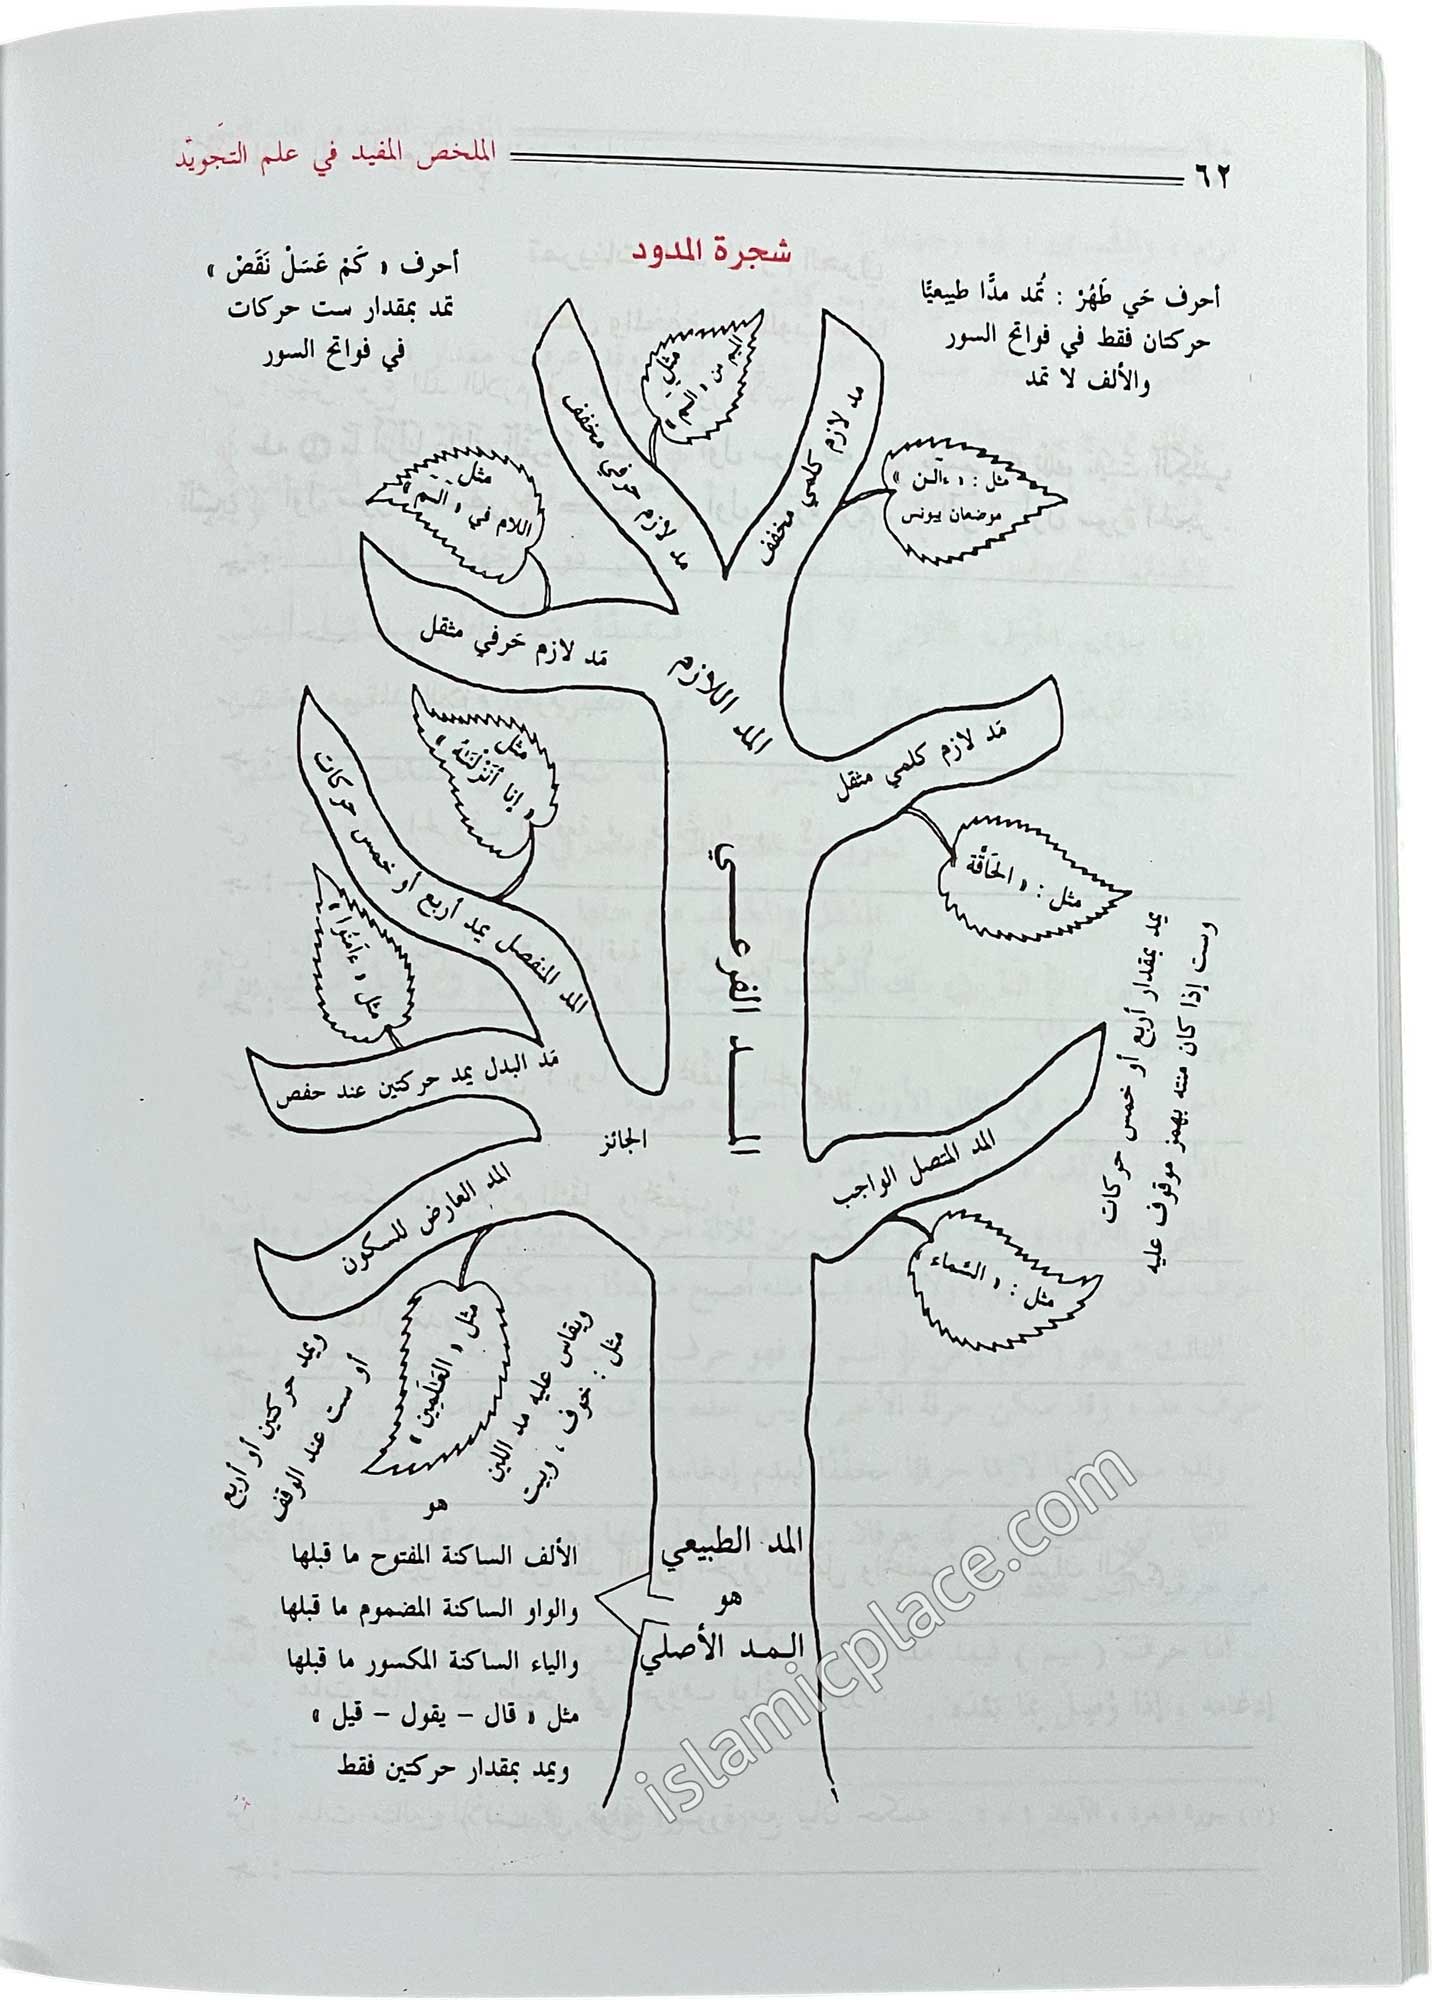 ٦٢
الملخص المفيد في علم التجويد
شجرة المدود
أحرف حَي طَهُرْ : تُمد مدًّا طبيعيًّا
حركتان فقط في فواتح السور
والألف لا تمد
أحرف « كَمْ عَسَلْ نَقَصْ »
تمد بمقدار ست حركات
في فواتح السور
مد لازم كلمي مخفف
مثل : « ءآلـٰن »
موضعان بيونس
مد لازم حرفي مخفف
مثل
الميم من « الٓمٓ »
مَد لازم حَرفي مثقل
مثل
اللام في « الٓمٓ »
المد اللازم
مَد لازم كلمي مثقل
مثل : « الحَاقَّة
المـــد الفرعـــي
المد المنفصل يمد أربع أو خمس حركات
مثل
« إنا أنزَلْنَـٰهُ »
مَد البدل يمد حركتين عند حفص
مثل « ءَامَنُوا »
الجائز
المد المتصل الواجب
مثل : « السَّماء
يمد بمقدار أربع أو خمس حركات
وست إذا كان منته بهمز موقوف عليه
المد العارض للسكون
مثل « العَـٰلَمِين »
ويمد حركتين أو أربع
أو ست عند الوقف
ويقاس عليه مد اللين
مثل : خوف ، وبيت
المد الطبيعي
هو
المـد الأصلي
هو
الألف الساكنة المفتوح ما قبلها
والواو الساكنة المضموم ما قبلها
والياء الساكنة المكسور ما قبلها
مثل « قال – يقول – قيل »
ويمد بمقدار حركتين فقط
islamicplace.com